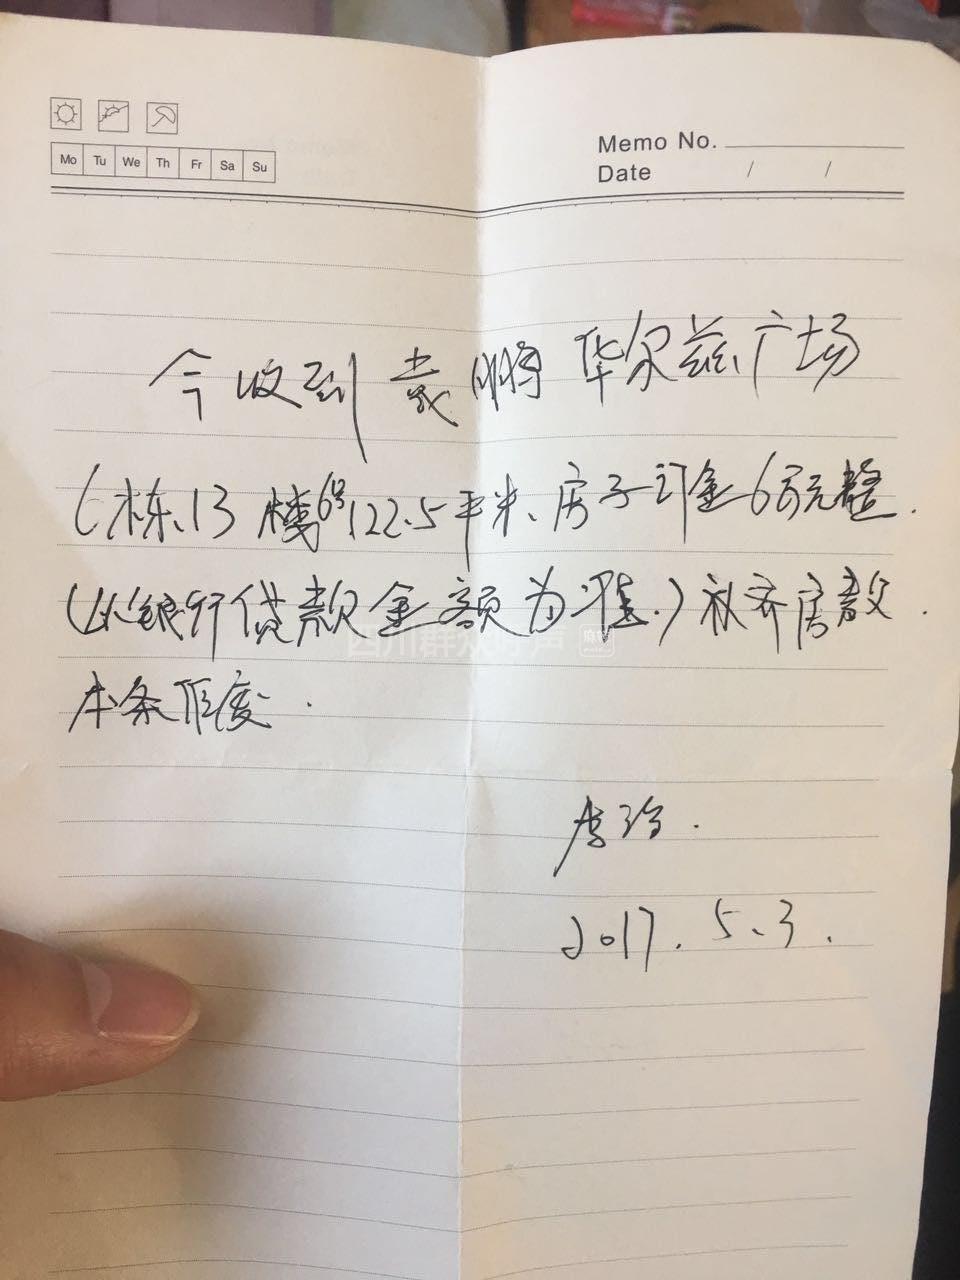 Mo Tu We Th Fr Sa Su
Memo No.
Date / /
今收到 袁鹏 华尔兹广场
栋、13楼6号122.5平米、房子订金6万元整.
(以银行贷款金额为准.)补齐房款.
本条作废.
2017.5.3.
四川群众呼声 麻辣